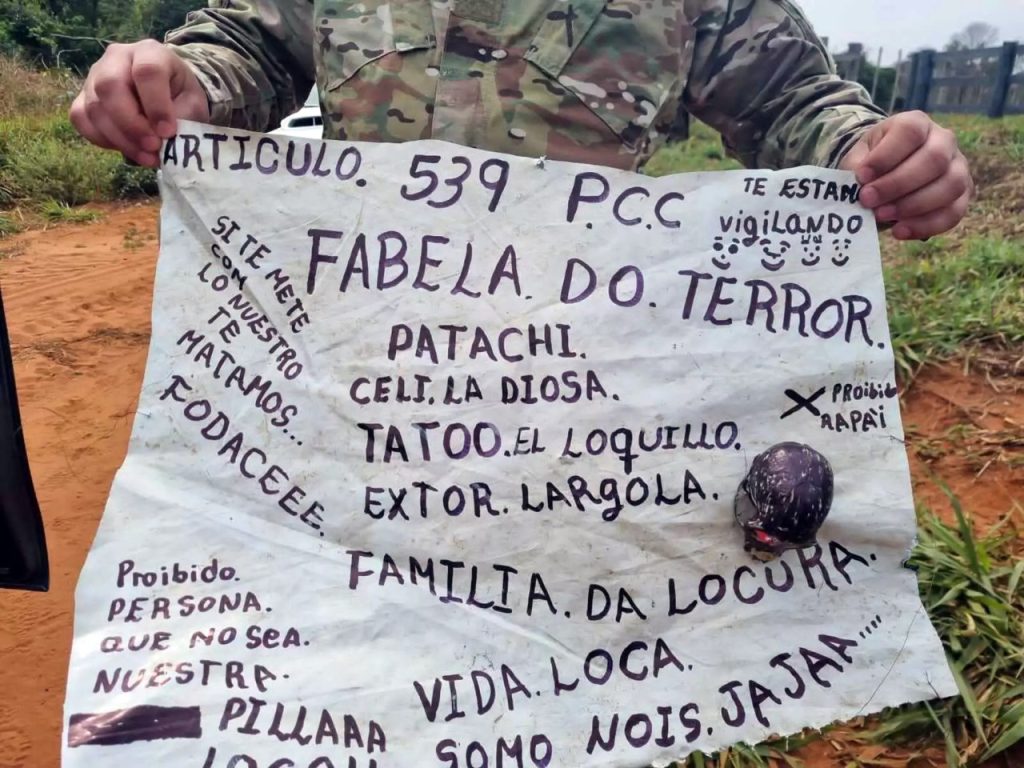 ARTICULO. 539 P.C.C
TE ESTAN
vigiLANDO
FABELA. DO. TERROR.
SI TE METE
COM
LO NUESTRO
TE
MATAMOS...
FODACEEE.
PATACHI.
CELI. LA DIOSA.
TATOO. EL LOQUILLO.
EXTOR. LARGOLA.
X PROibido
RAPAi
FAMILIA. DA LOCURA.
Proibido.
PERSONA.
QUE NO SEA.
NUESTRA.
VIDA. LOCA.
PILLAAA
SOMO NOIS. JAJAA....